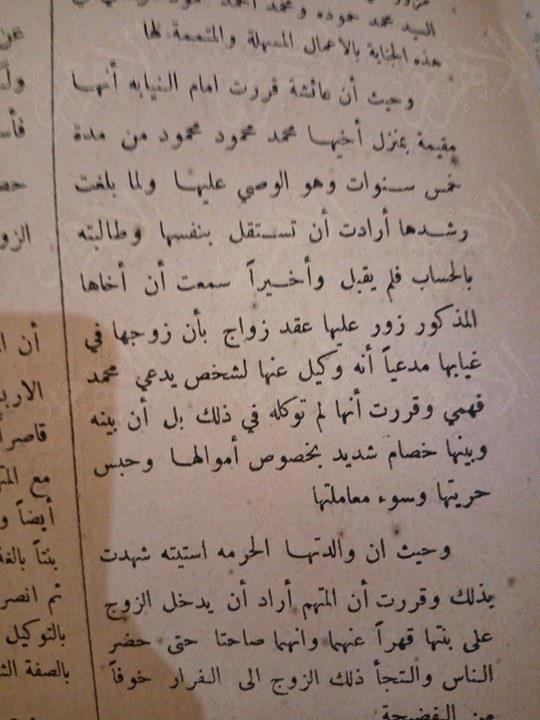 السيد محمد حموده ومحمد احمد
هذه الجناية بالاعمال المسهلة والمتممة لها
وحيث أن عائشة قررت امام النيابه أنها
مقيمة بمنزل أخيها محمد محمود محمود من مدة
خمس سنوات وهو الوصي عليها ولما بلغت
رشدها أرادت أن تستقل بنفسها وطالبته
بالحساب فلم يقبل وأخيراً سمعت أن أخاها
المذكور زور عليها عقد زواج بأن زوجها في
غيابها مدعياً أنه وكيل عنها لشخص يدعي محمد
فهمي وقررت أنها لم توكله في ذلك بل أن بينه
وبينها خصام شديد بخصوص أموالها وحبس
حريتها وسوء معاملتها
وحيث ان والدتها الحرمه استيته شهدت
بذلك وقررت أن المتهم أراد أن يدخل الزوج
على بنتها قهراً عنهما وانهما صاحتا حتى حضر
الناس والتجأ ذلك الزوج الى الفرار خوفاً
من الفضيحة
عن
حض
الزو
أن ا
الارب
قاصر
مع المت
أيضاً و
بنتاً بالغة
ثم انصر
بالتوكيل
بالصفة الث